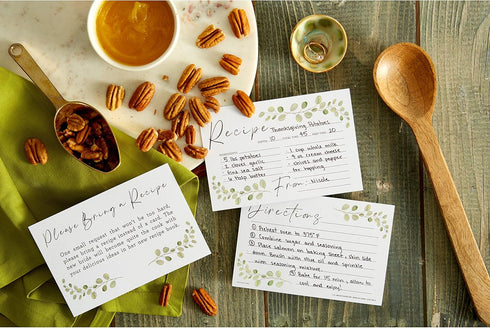 Recipe Thanksgiving Potatoes
SERVES 10 TOTAL TIME 45 PREP TIME 20
5 lbs potatoes
2 cloves garlic
fine sea salt
6 tbsp butter
1 cup whole milk
4 oz cream cheese
chives and pepper
for topping
From: Nicole
Please Bring a Recipe
One small request that won't be too hard,
please bring a recipe instead of a card. The
bride will become quite the cook with
your delicious ideas in her new recipe book.
Directions
① Preheat oven to 375°F
② Combine sugar and seasoning
③ Place salmon on baking sheet, skin side
down. Brush with olive oil and sprinkle
with seasoning mixture.
④ Bake for 15 min, allow to
cool, and enjoy!